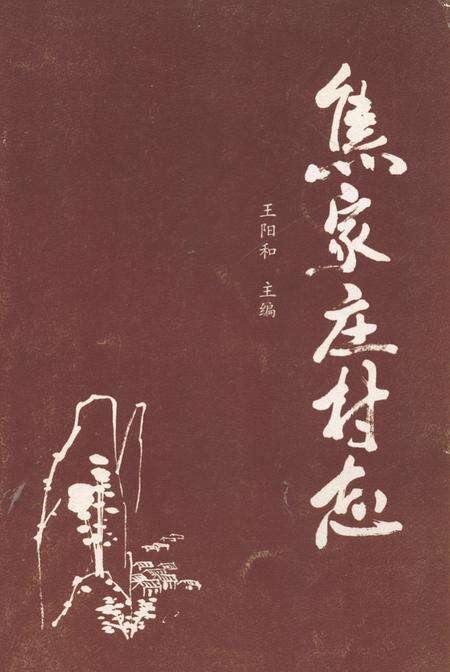 焦家庄村志
王阳和 主编